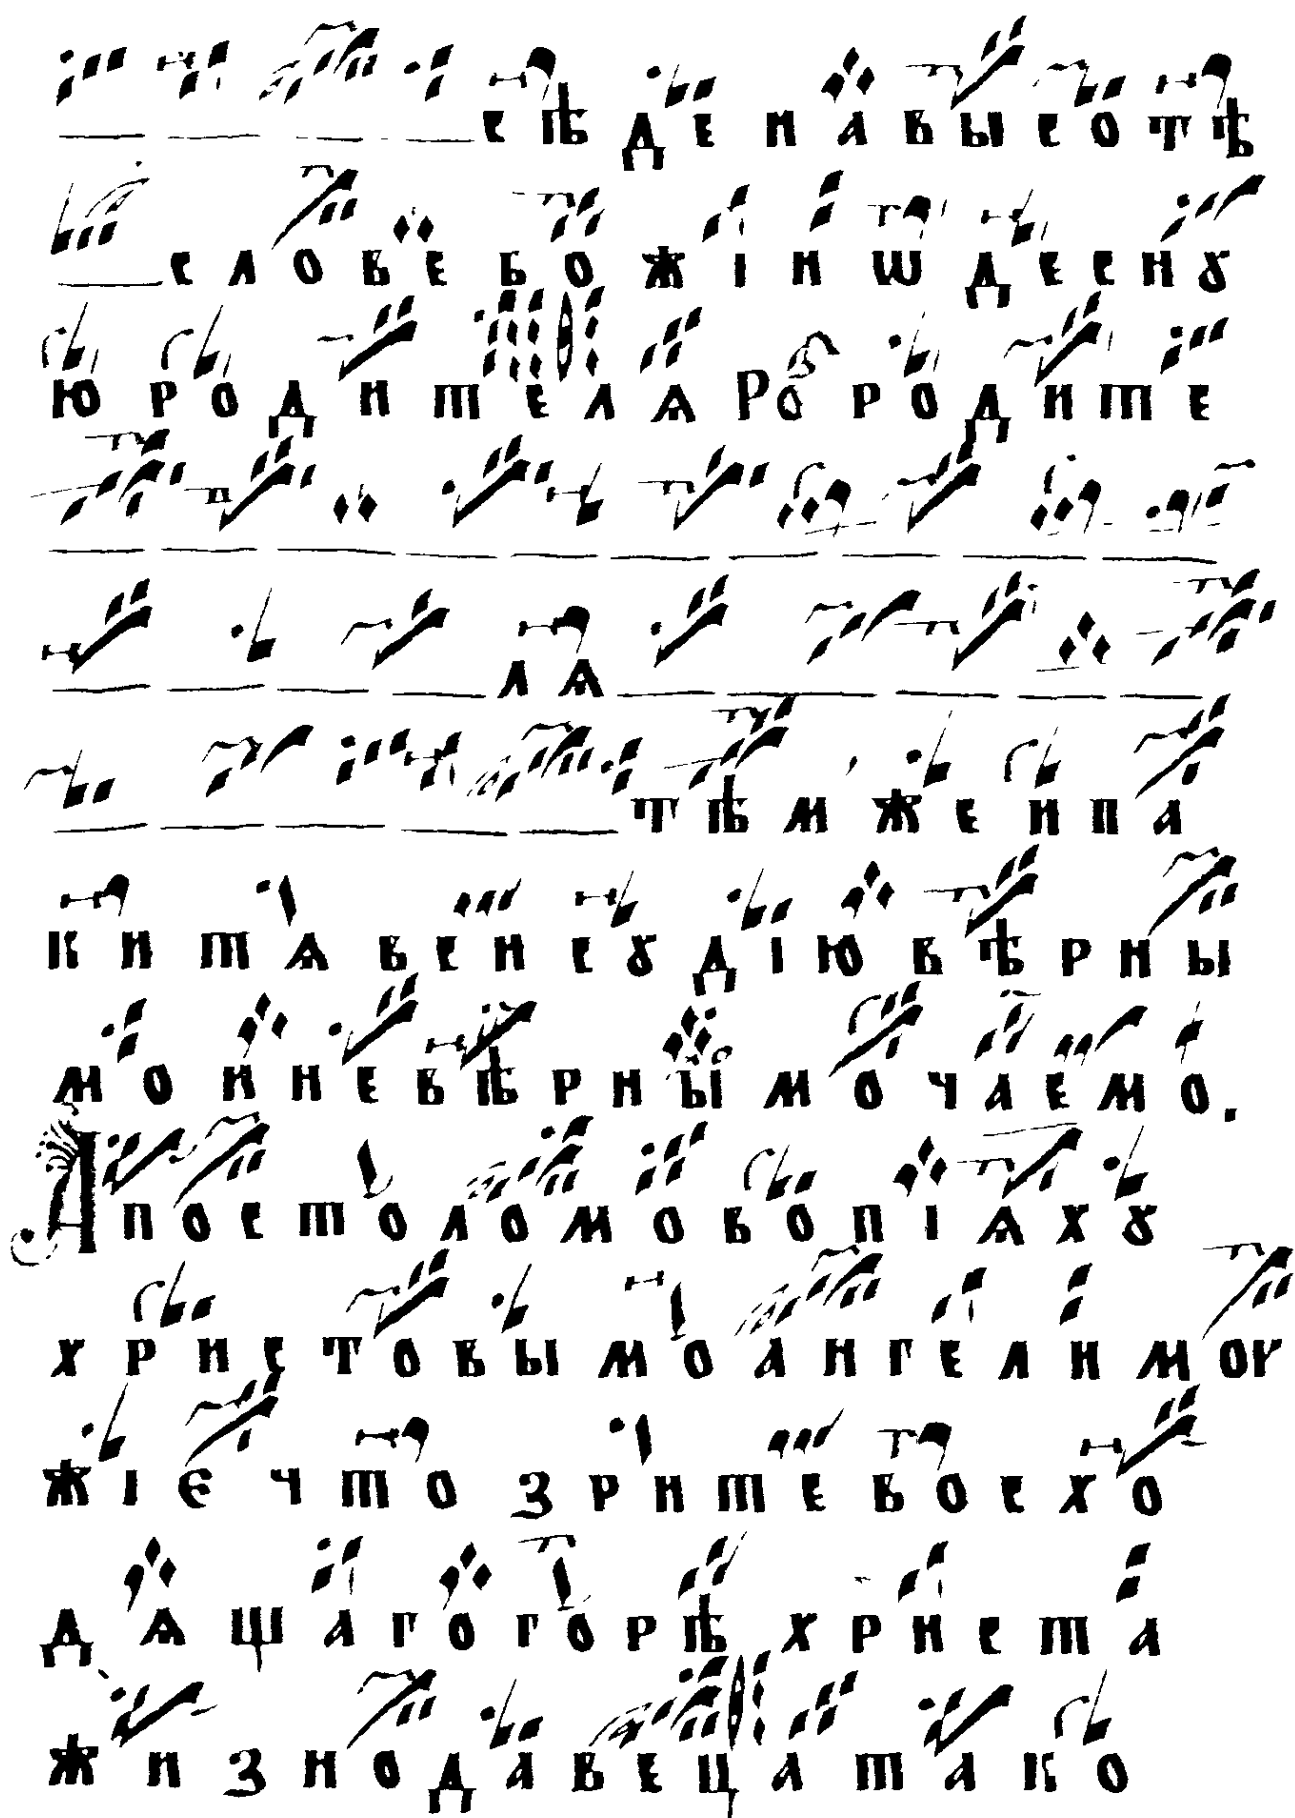 сѣденавысотѣ
словебожіиѡдесну
юродителяродите
лѧ
тѣмжеипа
китѧвенесꙋдіювѣрны
моиневѣрнымочаемо.
Апостоломовопіѧхꙋ
христовымоангелимоу
жієчтозритевосхо
дѧщагогорѣхриста
жизнодавецатако